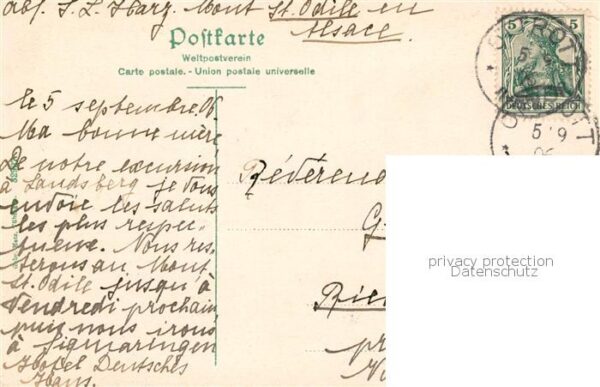 abs. S. L. Harz. Mont St. Odile en
Alsace
Postkarte
Weltpostverein
Carte postale. - Union postale universelle
5 5
DEUTSCHES REICH
OTTROTT
5 9
OTTROTT
5 9
06
le 5 septembre 06
Ma bonne mère
De notre excursion
à Landsberg je vous
envoie les saluts
les plus respec-
tueux. Nous res-
terons au Mont
St. Odile jusqu'à
Vendredi prochain
puis nous irons
à Sigmaringen
Hotel Deutsches
Haus.
Révérend
G
Rie
pr
privacy protection
Datenschutz